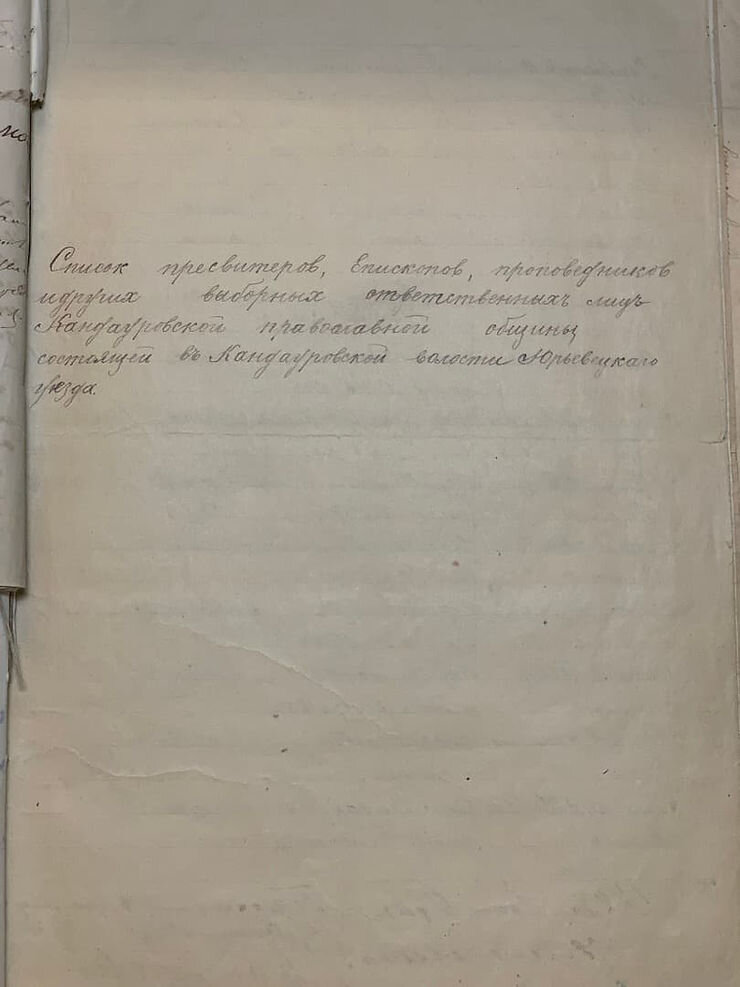 Список пресвитеров, Епископов, проповедников
и других выборных ответственныхъ лицъ
Кандауровской православной общины
состоящей въ Кандауровской волости Юрьевецкаго
уезда.